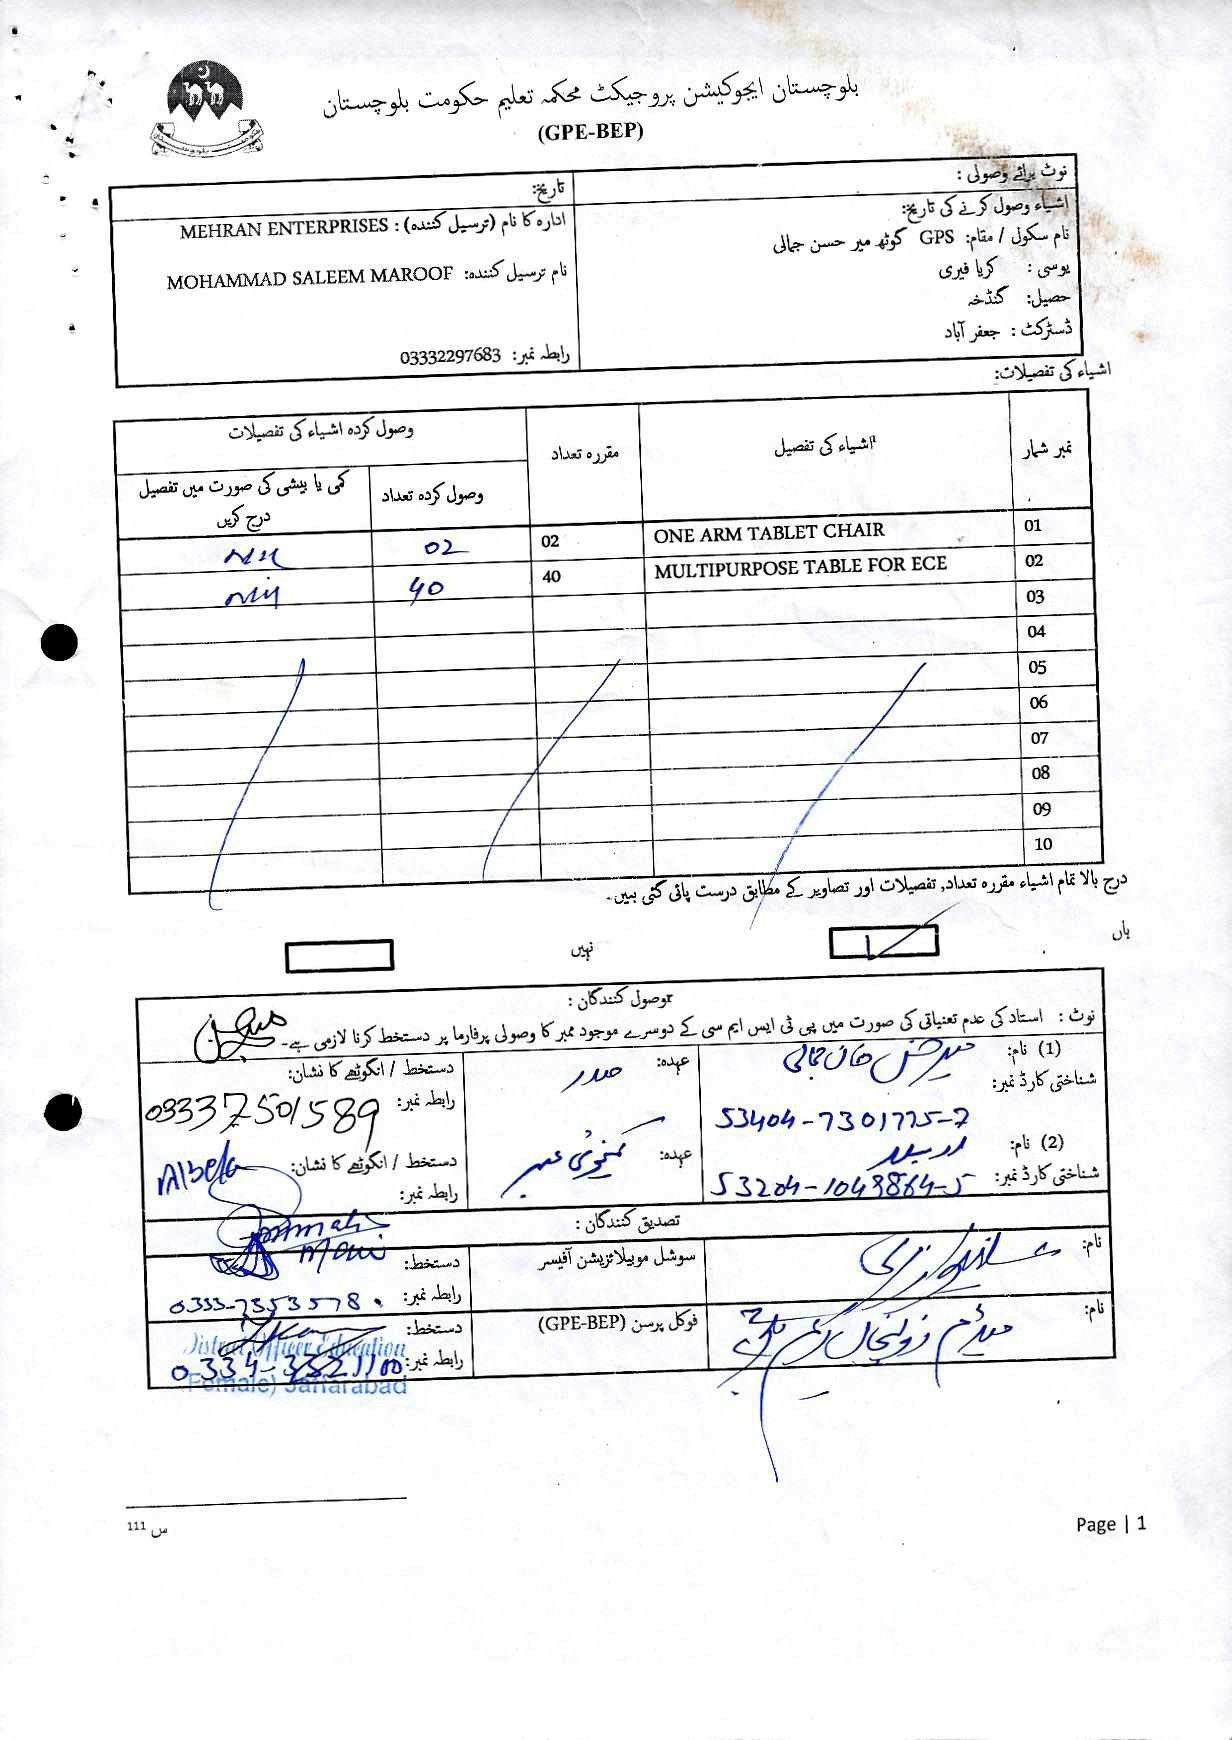 بلوچستان ایجوکیشن پروجیکٹ محکمہ تعلیم حکومت بلوچستان
(GPE-BEP)
نوٹ برائے وصولی :
اشیاء وصول کرنے کی تاریخ:
نام سکول / مقام: GPS گوٹھ میر حسن جمالی
یوسی : کریا فیری
حصیل: گنڈخہ
ڈسٹرکٹ : جعفر آباد
تاریخ:
ادارہ کا نام (ترسیل کنندہ) : MEHRAN ENTERPRISES
نام ترسیل کنندہ: MOHAMMAD SALEEM MAROOF
رابطہ نمبر: 03332297683
اشیاء کی تفصیلات:
نمبر شمار اشیاء کی تفصیل مقررہ تعداد وصول کردہ اشیاء کی تفصیلات
وصول کردہ تعداد کمی یا بیشی کی صورت میں تفصیل درج کریں
01 ONE ARM TABLET CHAIR 02 02 Nil
02 MULTIPURPOSE TABLE FOR ECE 40 40 Nil
03
04
05
06
07
08
09
10
درج بالا تمام اشیاء مقررہ تعداد, تفصیلات اور تصاویر کے مطابق درست پائی گئی ہیں۔
ہاں نہیں
وصول کنندگان :
نوٹ : استاد کی عدم تعنیاتی کی صورت میں پی ٹی ایس ایم سی کے دوسرے موجود ممبر کا وصولی پرفارما پر دستخط کرنا لازمی ہے۔
(1) نام: میر حسن خان جمالی عہدہ: صدر دستخط / انگوٹھے کا نشان:
شناختی کارڈ نمبر: 53404-7301775-7 رابطہ نمبر: 03337501589
(2) نام: عہدہ: دستخط / انگوٹھے کا نشان: Albela
شناختی کارڈ نمبر: 53204-1049864-5 رابطہ نمبر:
تصدیق کنندگان :
نام: سوشل موبیلائزیشن آفیسر دستخط:
رابطہ نمبر: 0333-7353578
نام: فوکل پرسن (GPE-BEP) دستخط:
رابطہ نمبر: 0334-3321100
District Officer Education
(Female) Jaffarabad
س 111
Page | 1